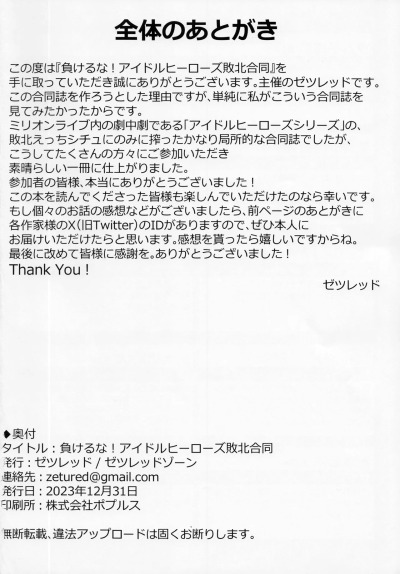 全体のあとがき
この度は『負けるな!アイドルヒーローズ敗北合同』を
手に取っていただき誠にありがとうございます。主催のゼツレッドです。
この合同誌を作ろうとした理由ですが、単純に私がこういう合同誌を
見てみたかったからです。
ミリオンライブ内の劇中劇である「アイドルヒーローズシリーズ」の、
敗北えっちシチュにのみに搾ったかなり局所的な合同誌でしたが、
こうしてたくさんの方々にご参加いただき
素晴らしい一冊に仕上がりました。
参加者の皆様、本当にありがとうございました!
この本を読んでくださった皆様も楽しんでいただけたのなら幸いです。
もし個々のお話の感想などがございましたら、前ページのあとがきに
各作家様のX(旧Twitter)のIDがありますので、ぜひ本人に
お届けいただけたらと思います。感想を貰ったら嬉しいですからね。
最後に改めて皆様に感謝を。ありがとうございました!
Thank You!
ゼツレッド
◆奥付
タイトル:負けるな!アイドルヒーローズ敗北合同
発行:ゼツレッド/ゼツレッドゾーン
連絡先:zetured@gmail.com
発行日:2023年12月31日
印刷所:株式会社ポプルス
無断転載、違法アップロードは固くお断りします。